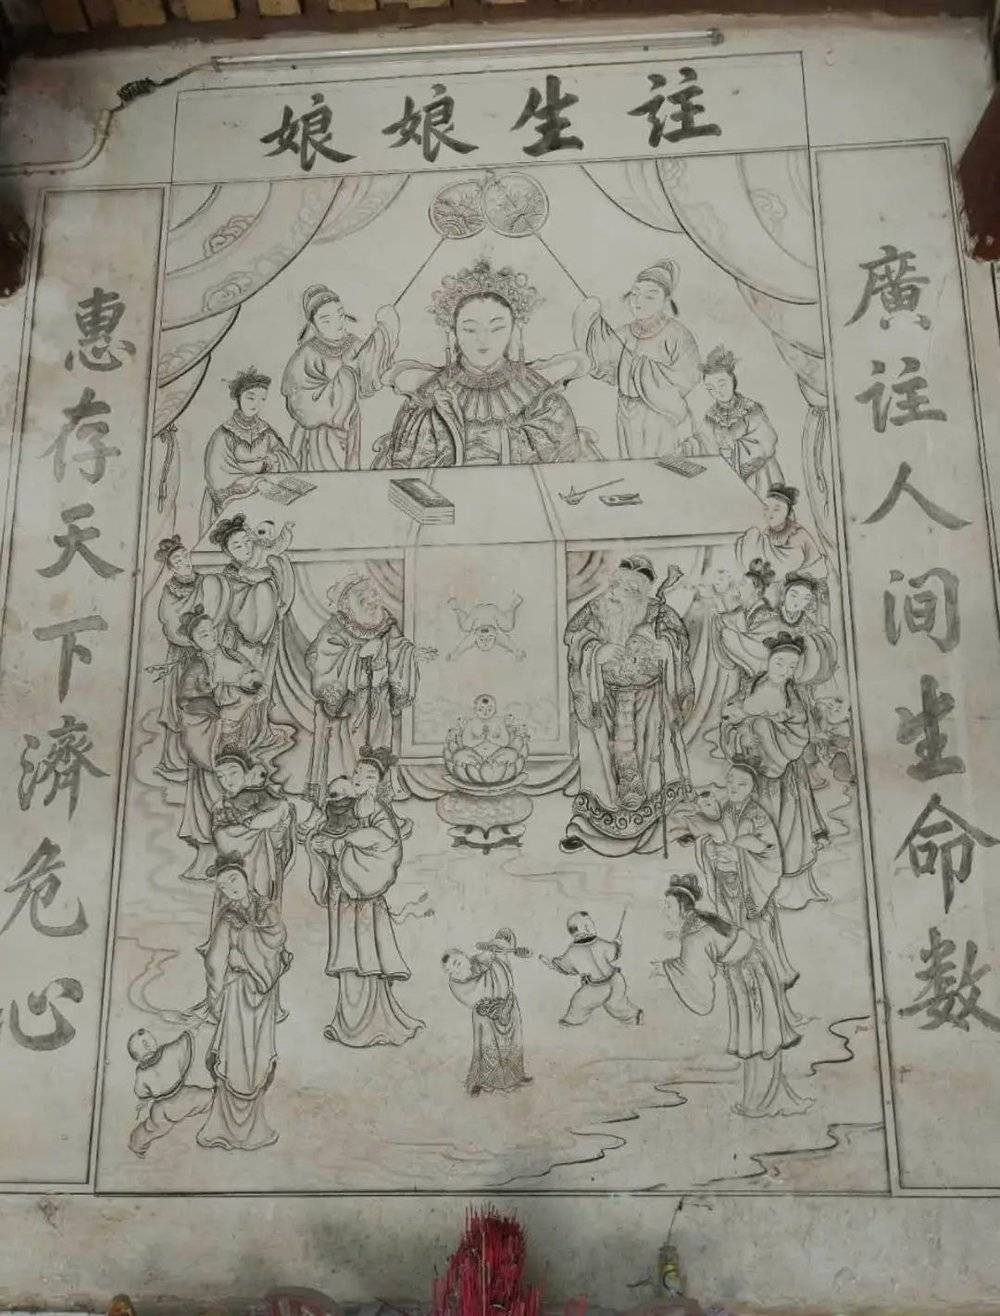 註生娘娘
廣註人間生命數
惠存天下濟危心